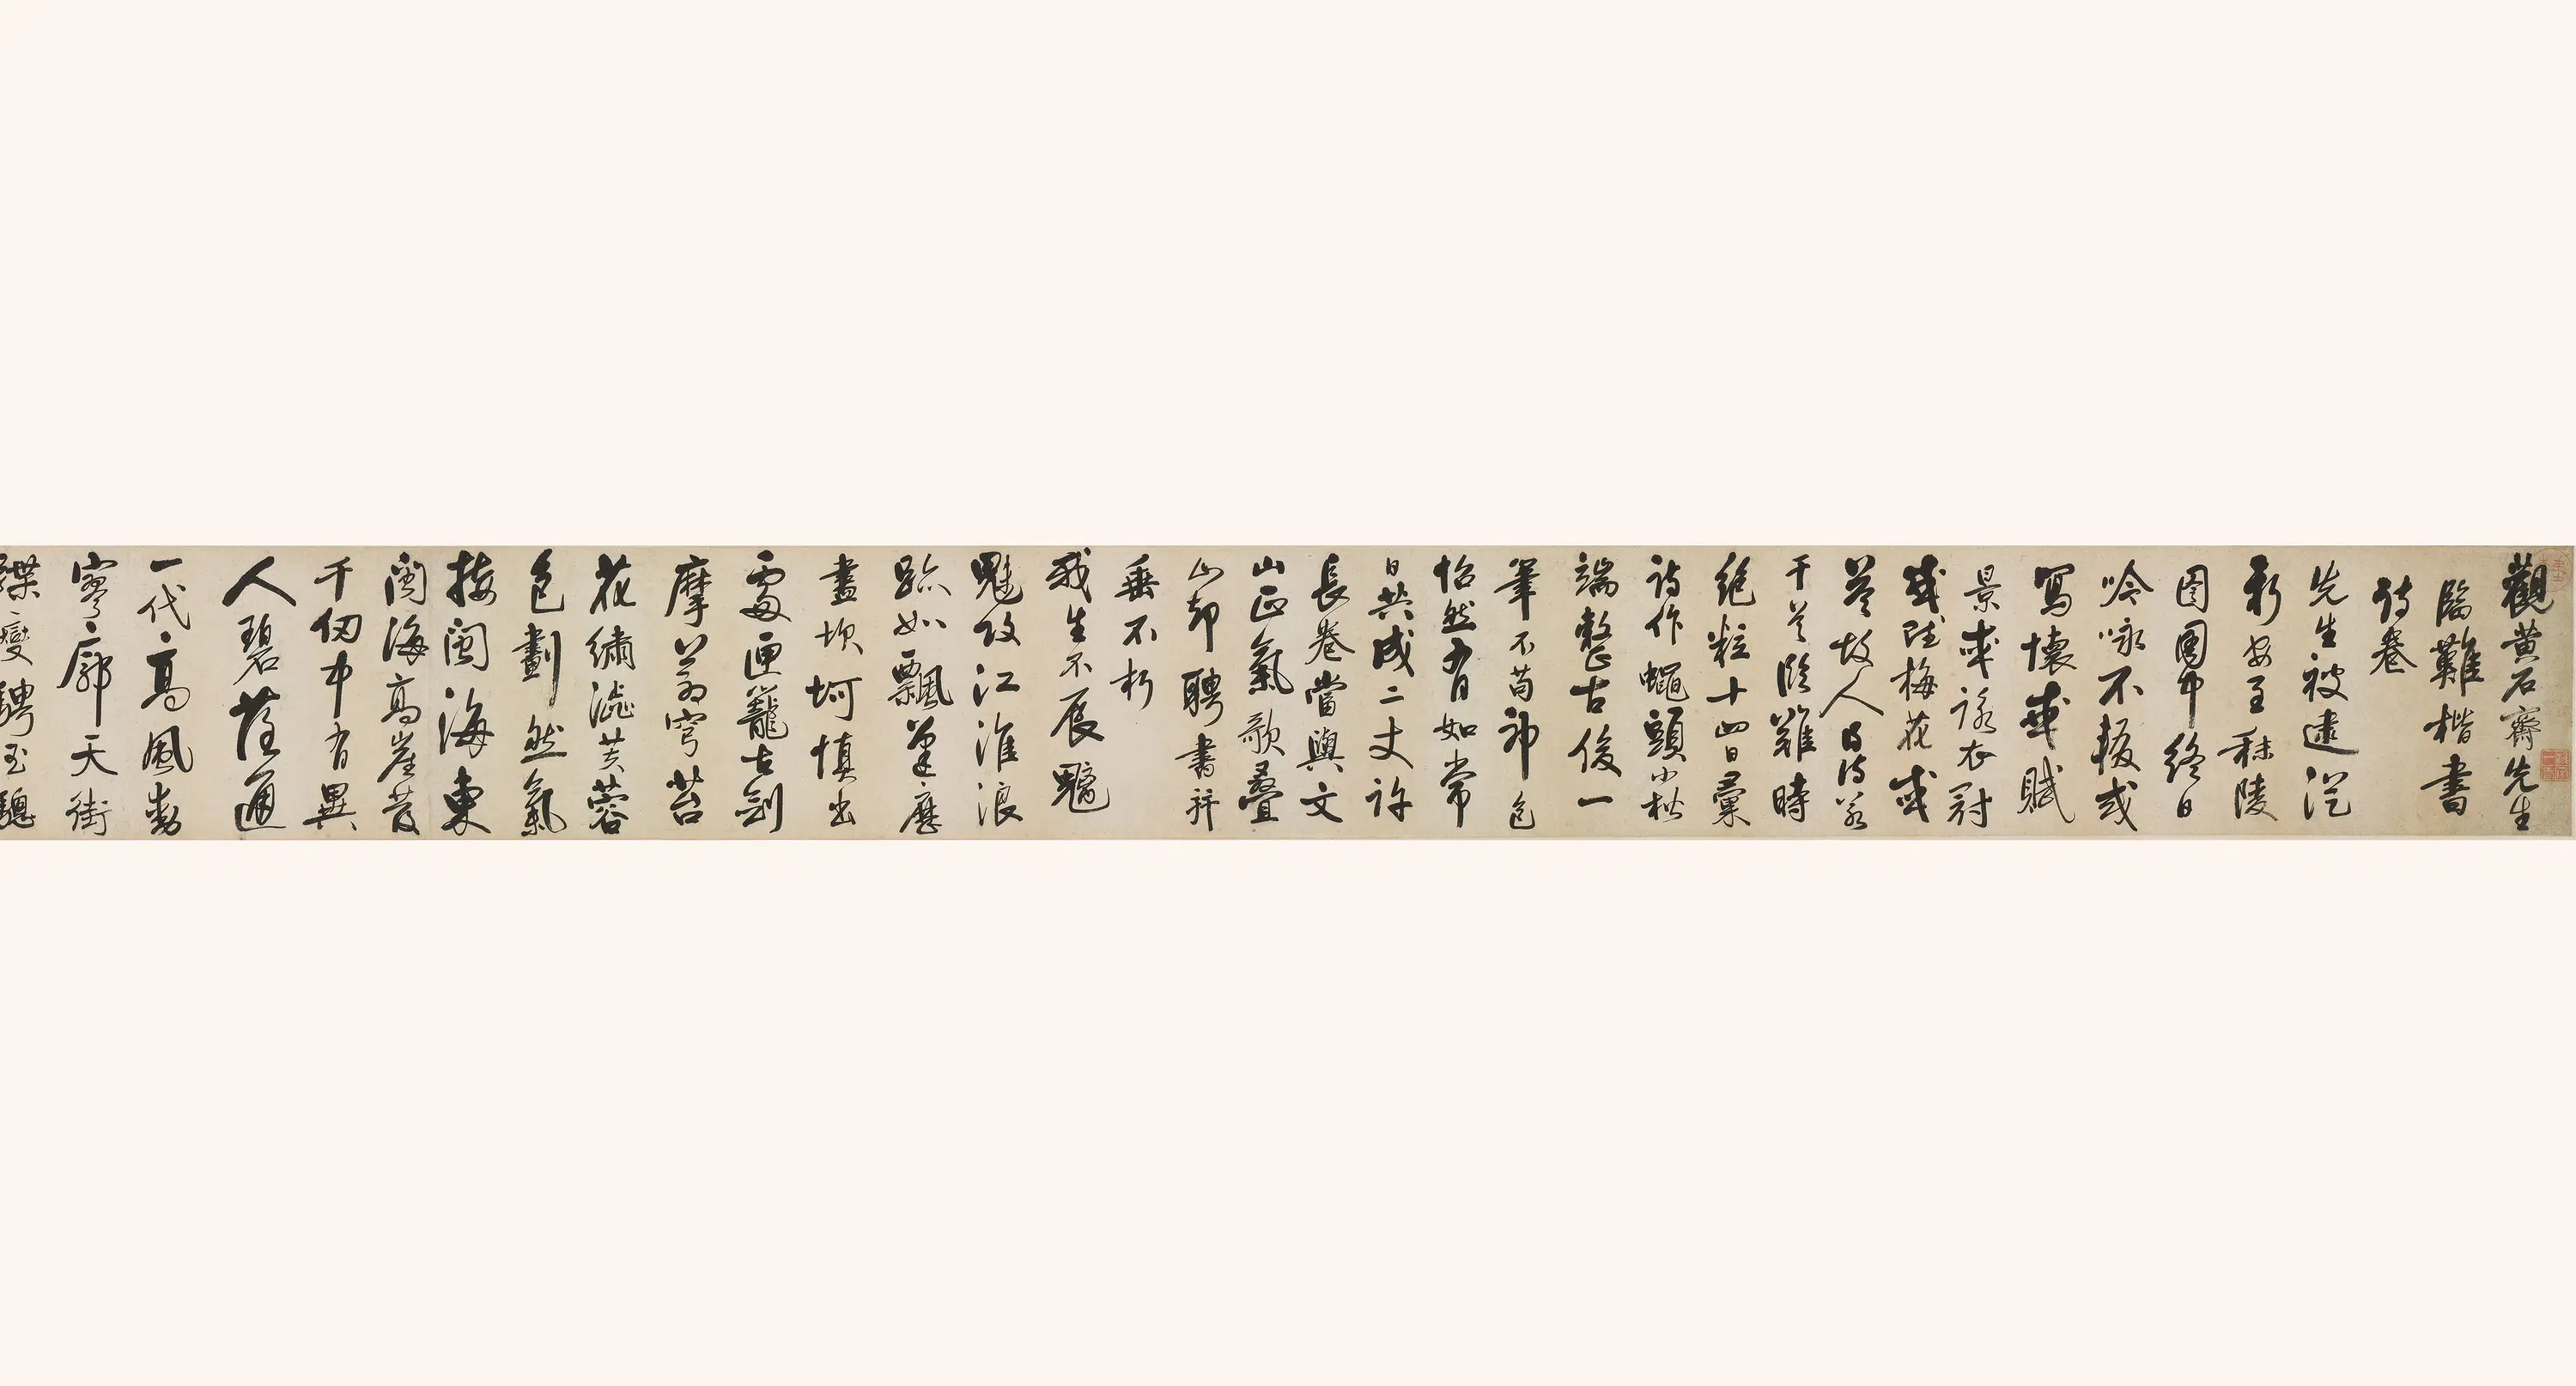 觀黃石齋先生
臨難楷書
詩卷
先生被逮從
新安至秣陵
囹圄中終日
吟咏不輟或
寫懷或賦
景或詠衣冠
或陡梅花或
答故人
于其臨難時
絕粒十四日彙
詩作蠅頭小楷
端整古俊一
筆不苟神色
怡然有如常
日共成二丈許
長卷當與文
山正氣歌疊
山却聘書並
垂不朽
我生不辰魑
魅攻江淮浪
跡如飄蓬歷
盡坎坷慎出
處匣藏古劍
摩蒼穹苔
花繡澁芙蓉
色劃然氣
接閩海東
閩海高崖發
千仞中有異
人碧落通
一代高風動
寥廓天街
蹀躞騁玉驄